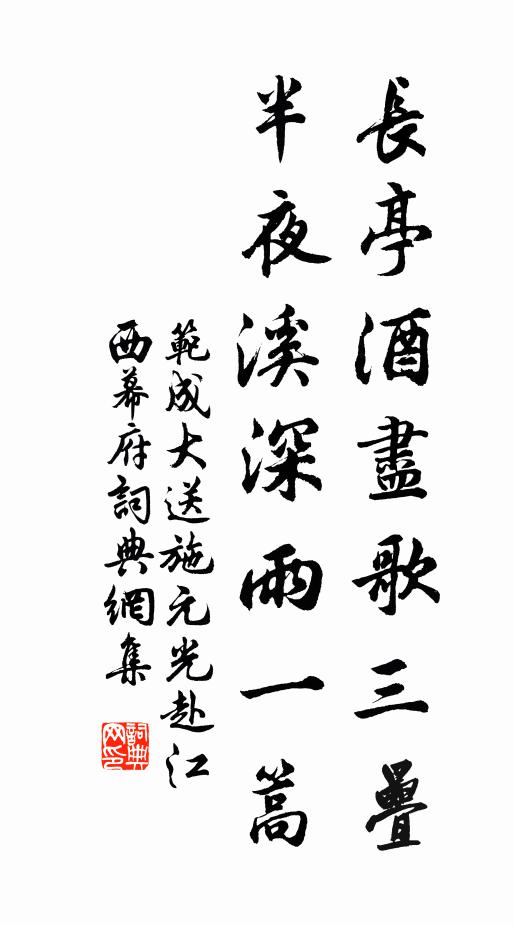 長亭酒盡歌三疊
半夜溪深雨一篙
範成大送施元光赴江
西幕府詞典網集
詞典
网印